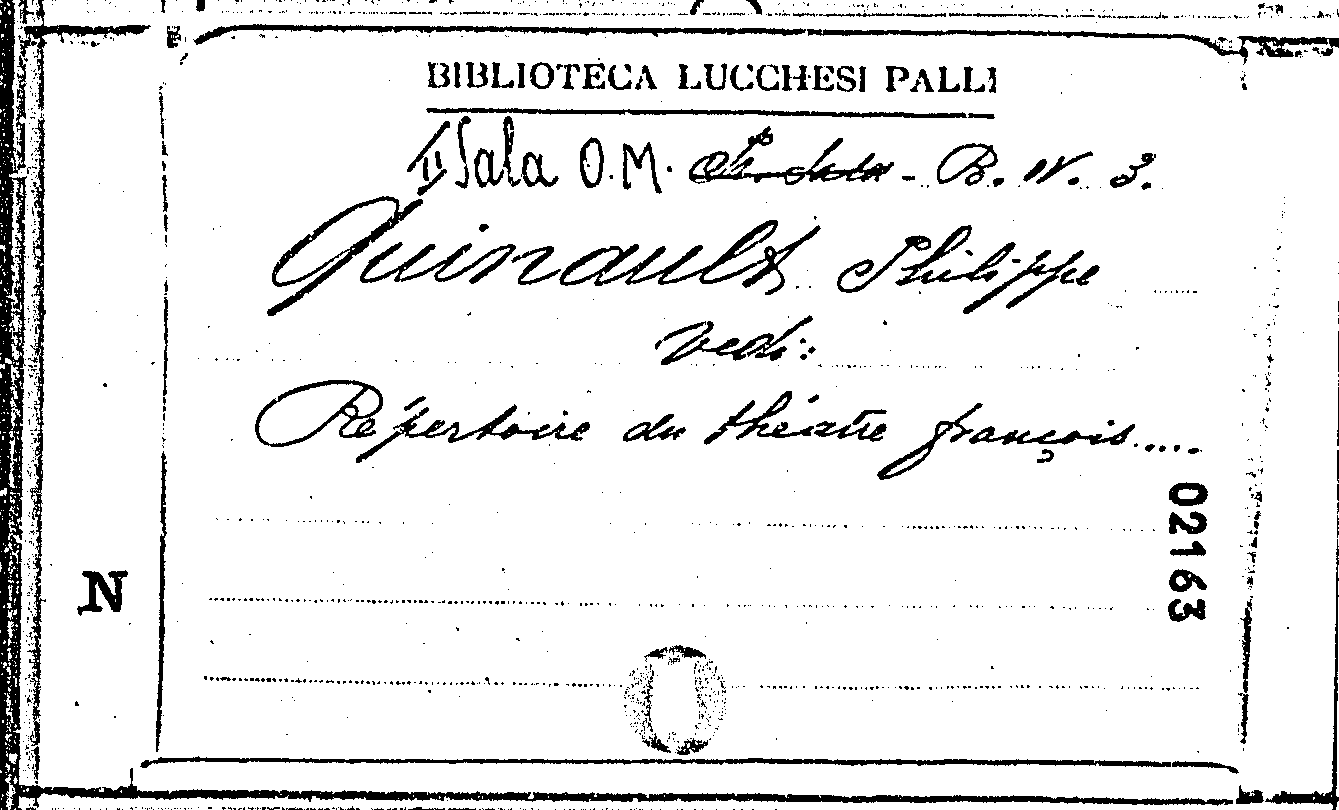 BIBLIOTECA LUCCHESI PALLI
II Sala O.M. - B. IV. 3.
Quinault Philippe
Vedi:
Répertoire du théatre françois....
02163
N